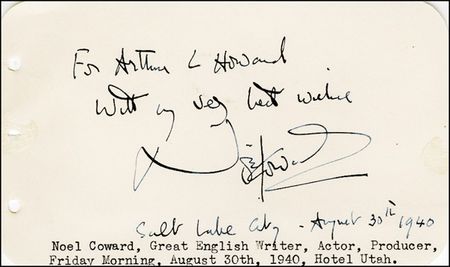 For Arthur L Howard
With my very best wishes
Noël Coward
Salt Lake City - August 30th 1940
Noel Coward, Great English Writer, Actor, Producer,
Friday Morning, August 30th, 1940, Hotel Utah.